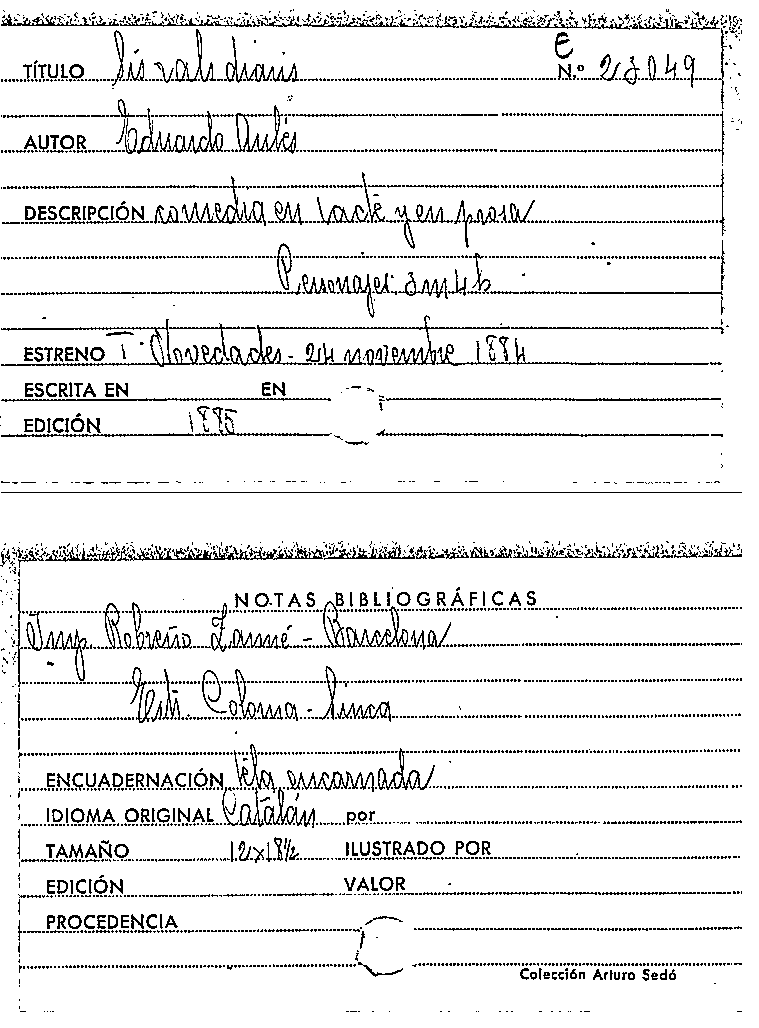 TÍTULO Sis rals diaris
e
N.º 23049
AUTOR Eduardo Aulés
DESCRIPCIÓN comedia en 1 acte y en prosa
Personajes 3m 4h
ESTRENO T. Novedades - 24 novembre 1884
ESCRITA EN EN
EDICIÓN 1885
NOTAS BIBLIOGRÁFICAS
Imp. Robreño Zanné - Barcelona
Coloma -
ENCUADERNACIÓN tela encarnada
IDIOMA ORIGINAL Catalán por
TAMAÑO 12x18½ ILUSTRADO POR
EDICIÓN VALOR
PROCEDENCIA
Colección Arturo Sedó